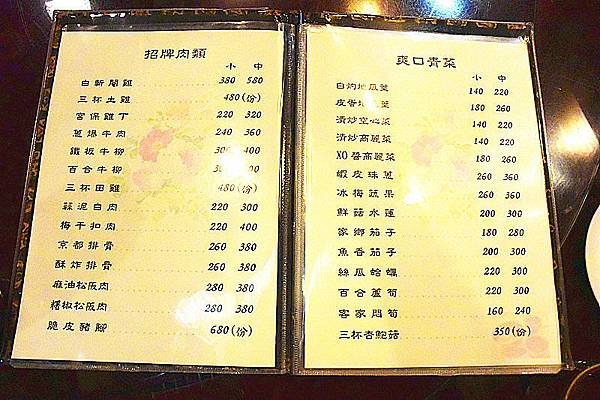 招牌肉類
小 中
白斬閹雞 380 580
三杯土雞 480(份)
宮保雞丁 220 320
蔥爆牛肉 240 360
鐵板牛柳 300 400
百合牛柳 400
三杯田雞 480(份)
蒜泥白肉 220 300
梅干扣肉 220 400
京都排骨 260 380
酥炸排骨 260 380
麻油松阪肉 280 380
椒松阪肉 280 380
脆皮豬腳 680(份)
爽口青菜
小 中
白灼地瓜葉 140 220
皮蛋地瓜葉 180 260
清炒空心菜 140 220
清炒高麗菜 140 220
XO醬高麗菜 180 260
蝦皮珠蔥 260 360
冰梅蔬果 260 360
鮮菇水蓮 200 300
家鄉茄子 180 280
魚香茄子 200 300
絲瓜蛤蠣 220 300
百合蘆筍 220 300
客家悶筍 160 240
三杯杏鮑菇 350(份)